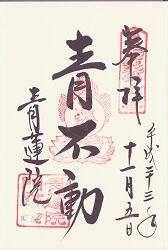 奉拝
平成二十三年
十一月五日
青不動
青蓮院